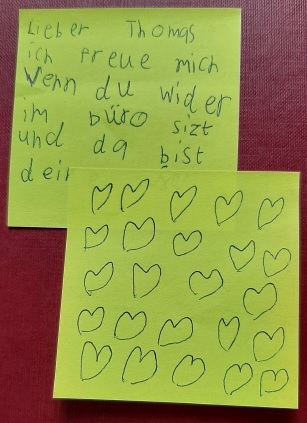 Lieber Thomas
ich freue mich
Venn du wider
im büro sizt
und da bist
dein